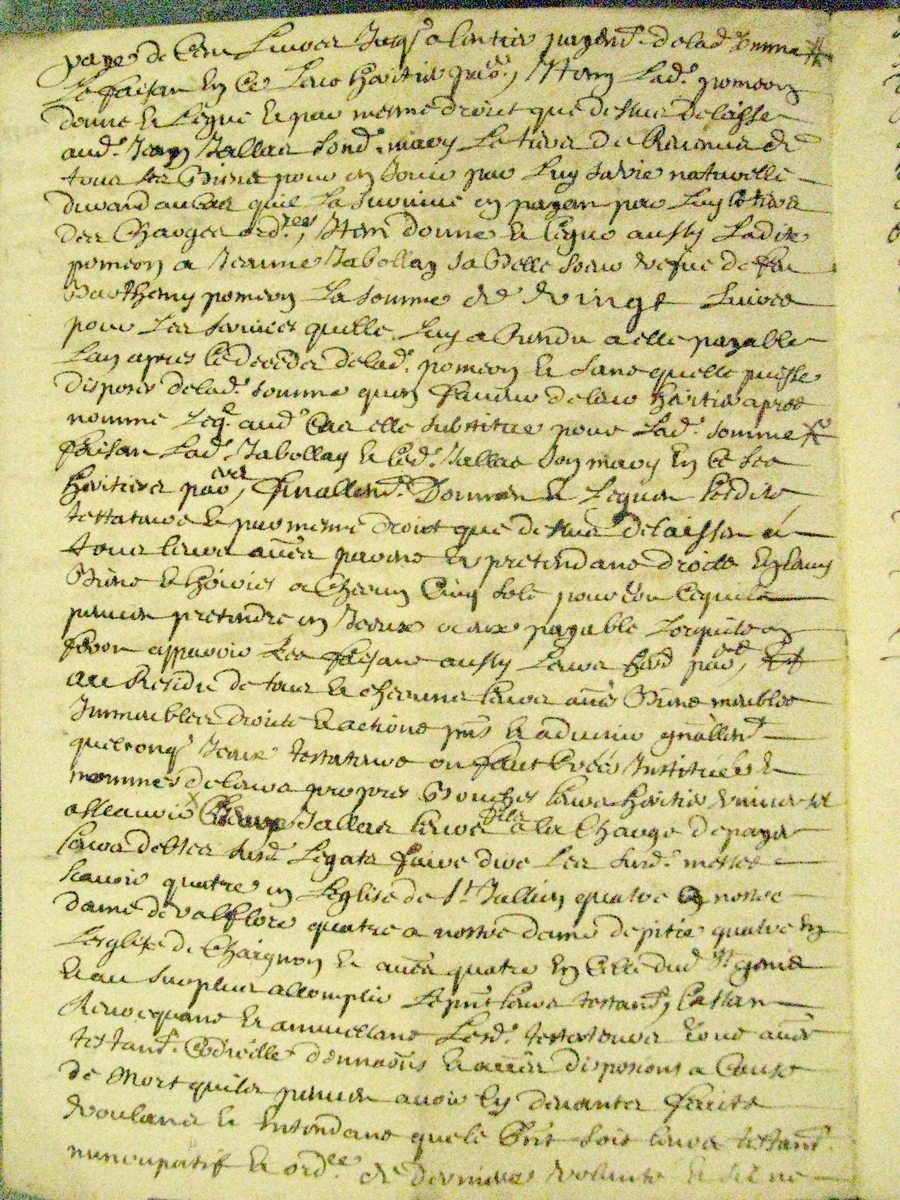 payé de cent Livres Jusq' a lentier payemt. de lad. somme
Le faisan En Ce Leur heritier par, Item Lad. pomeon
donne Et Legue Et par mesme droict que dessus delaisse
aud. Jean Jallas sond. mary Le tiers du Revenus de
tous ses Biens pour en Jouir par Luy sa vie naturelle
durand au cas quil La survive en payan par Luy le tiers
des Charges ordres, Item donne Et Legue aussy Ladite
pomeon a Jeanne Jabollay sa Belle soeur vefue de feu
Barthemy pomeon La somme de vingt Livres
pour Les services quelle Luy a Rendu a elle payable
Lan apres Le deceder delad. pomeon Et sans quelle puisse
disposer delad. somme quen faveur de leur heritier apres
nommé aud. Cas elle substitue pour Lad. somme
faisan Lad. Jabollay Et Led. Jallas son mary En Ce Ses
heritiers par, finallemt. Donnen Et Leguen Lesdits
testateurs Et par mesme droict que dessus delaissen a
tous leurs aues parens Et pretendans droicts En Leurs
Biens Et hoiries a Chacun Cinq sols pour Ce quils
peuven pretendre en Jceux payable Lorsquils en
feron apparoir Les faisans aussy Leurs herd par,
au Residu de tous Et chacuns leurs aues Biens meubles
Immeubles droicts Et actions pnts Et advenir gnallemt.
quelconq' Jceux testateurs on faict Créés Institués Et
nommés de leurs propres Bouches leurs heritier universel
assavoir Jallas leurs fils a la Charge de payer
leurs debtes susd. Legats faire dire Les susd. messes
scavoir quatre en Leglise de St. Jullien quatre a nostre
dame de valflory quatre a nostre dame de pitie quatre En
Lesglise de Chaignon Et aues quatre En Celle dud. St. genis
Et au surplus accomplir Le pnt leurs testamt, Cassan
Revocquans Et annullans Lesd. testateurs tous aues
testamt. Codicilles donnaons Et aues disposions a Cause
de mort quils peuven avoir Cy devantes faicts
voulans Et Entendans que le pnt soit leurs testamt.
nuncupatif Et ordre. de derniere volunté Et